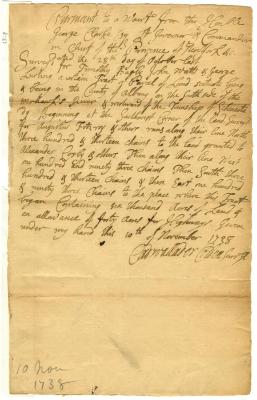 Pursuant to a Warrant from the Honble
George Clarke Esq Lt Governor & Commander
in Chief of the Province of New York &c
Survey'd the 28th day of October last
for Timothy Bagly John Watts & George
a certain Tract of Land situate lying
& being in the County of Albany on the South side of the
Mohawks River & Westward of the Township of
Beginning at the Southwest Corner of the Land Survey'd
for Augustus Fitzroy & others runs along their line North
three hundred & thirteen chains to the land granted to
Alexander Corby & others Then along their line West
one hundred and ninety three Chains Then South three
hundred & thirteen Chains & then East one hundred
& ninety three Chains to the place where this Tract
began Containing six thousand Acres of Land &
an allowance of forty Acres for Highways Given
under my hand this 10th of November 1738
Cadwallader Colden Surv Gl
10 Nov
1738